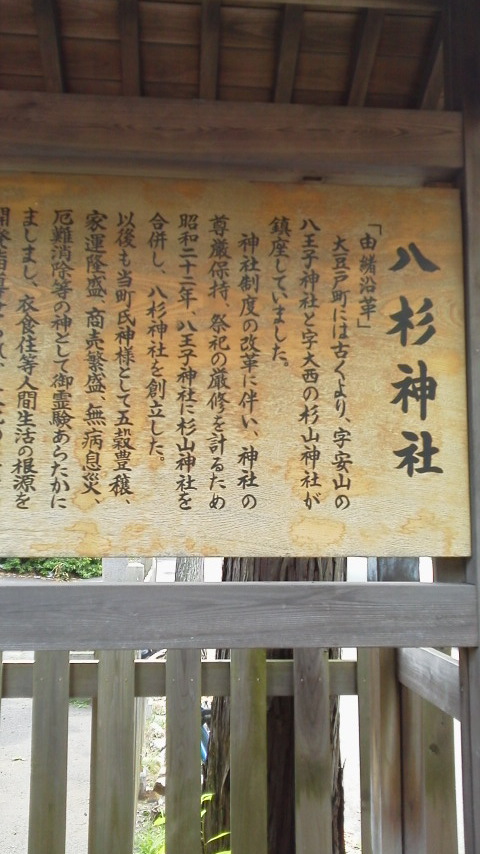 八杉神社
「由緒沿革」
大豆戸町には古くより、字安山の
八王子神社と字大西の杉山神社が
鎮座していました。
神社制度の改革に伴い、神社の
尊厳保持、祭祀の厳修を計るため
昭和三十三年、八王子神社に杉山神社を
合併し、八杉神社を創立した。
以後も当町氏神様として五穀豊穣、
家運隆盛、商売繁盛、無病息災、
厄難消除等の神として御霊験あらたかに
ましまし、衣食住等人間生活の根源を